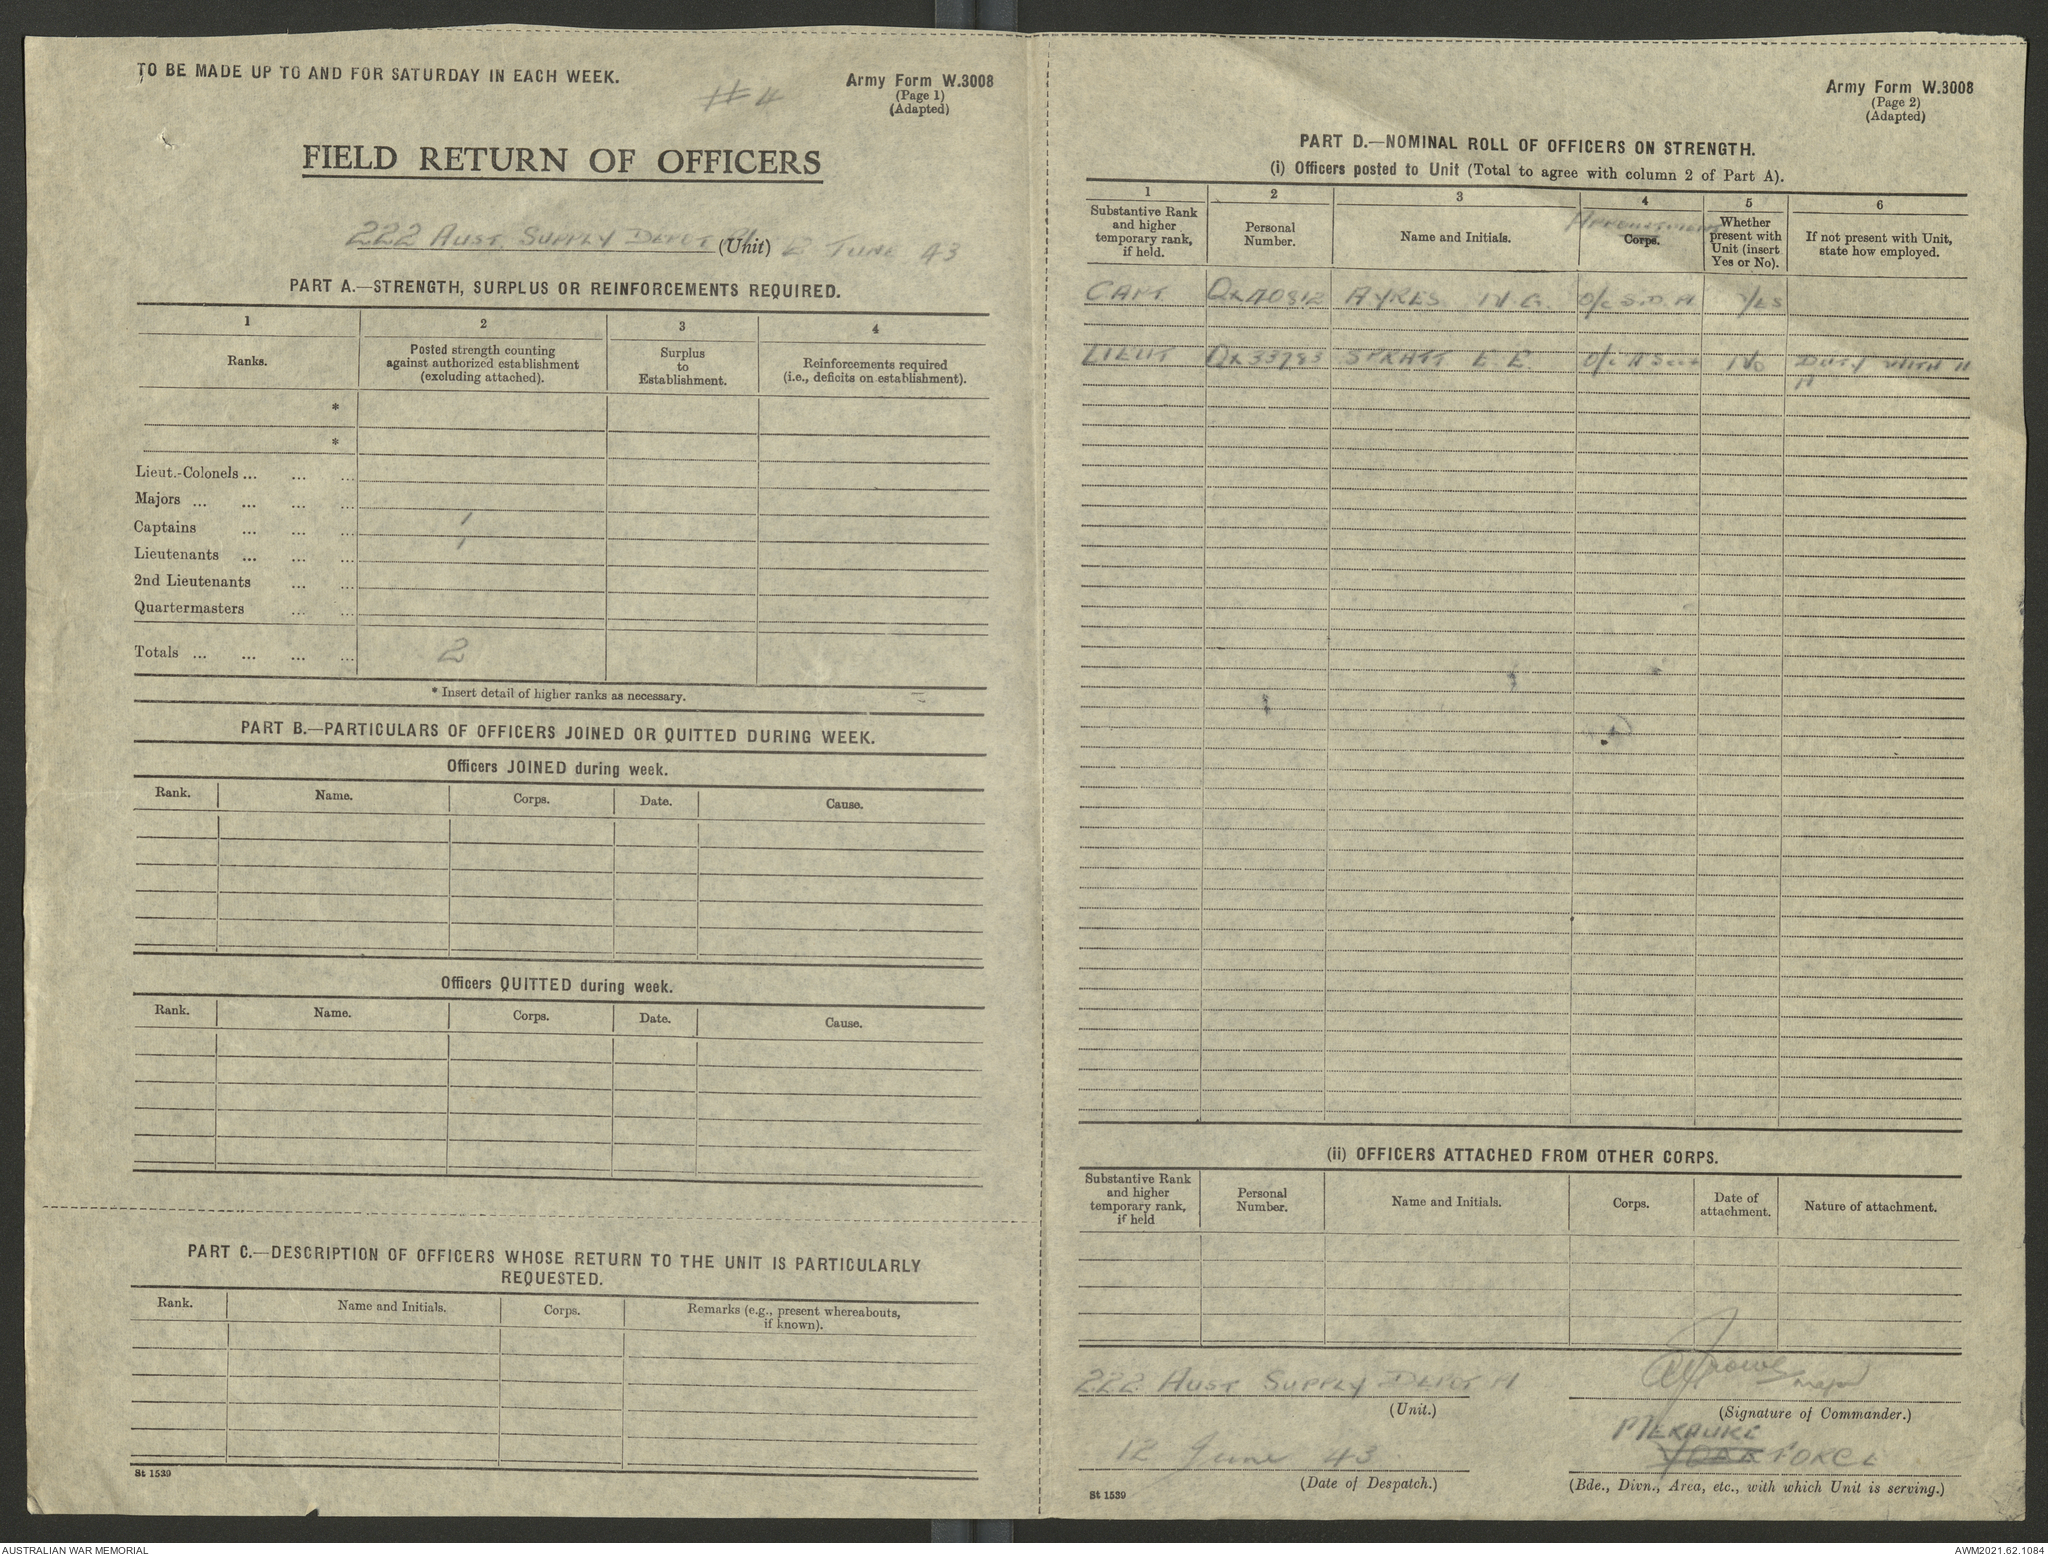 TO BE MADE UP TO AND FOR SATURDAY IN EACH WEEK.
#4
Army Form W.3008
(Page 1)
(Adapted)
FIELD RETURN OF OFFICERS
222 AUST. SUPPLY DEPOT Pl (Unit) 12 JUNE 43
PART A.—STRENGTH, SURPLUS OR REINFORCEMENTS REQUIRED.
1 2 3 4
Ranks. Posted strength counting against authorized establishment (excluding attached). Surplus to Establishment. Reinforcements required (i.e., deficits on establishment).
*
*
Lieut.-Colonels ... ... ...
Majors ... ... ... ...
Captains ... ... ... 1
Lieutenants ... ... ... 1
2nd Lieutenants ... ...
Quartermasters ... ...
Totals ... ... ... ... 2
* Insert detail of higher ranks as necessary.
PART B.—PARTICULARS OF OFFICERS JOINED OR QUITTED DURING WEEK.
Officers JOINED during week.
Rank. Name. Corps. Date. Cause.
Officers QUITTED during week.
Rank. Name. Corps. Date. Cause.
PART C.—DESCRIPTION OF OFFICERS WHOSE RETURN TO THE UNIT IS PARTICULARLY
REQUESTED.
Rank. Name and Initials. Corps. Remarks (e.g., present whereabouts, if known).
St 1539
Army Form W.3008
(Page 2)
(Adapted)
PART D.—NOMINAL ROLL OF OFFICERS ON STRENGTH.
(i) Officers posted to Unit (Total to agree with column 2 of Part A).
1 2 3 4 5 6
Substantive Rank and higher temporary rank, if held. Personal Number. Name and Initials. APPOINTMENT Corps. Whether present with Unit (insert Yes or No). If not present with Unit, state how employed.
CAPT QX40812 AYRES N.G. O/C S.D. YES
LIEUT QX33783 SPRATT E.E. O/C Sect NO DUTY WITH
(ii) OFFICERS ATTACHED FROM OTHER CORPS.
Substantive Rank and higher temporary rank, if held Personal Number. Name and Initials. Corps. Date of attachment. Nature of attachment.
222 AUST SUPPLY DEPOT
(Unit.)
Major
(Signature of Commander.)
12 June 43
(Date of Despatch.)
MERAUKE
FORCE
(Bde., Divn., Area, etc., with which Unit is serving.)
St 1539
AUSTRALIAN WAR MEMORIAL
AWM2021.62.1084